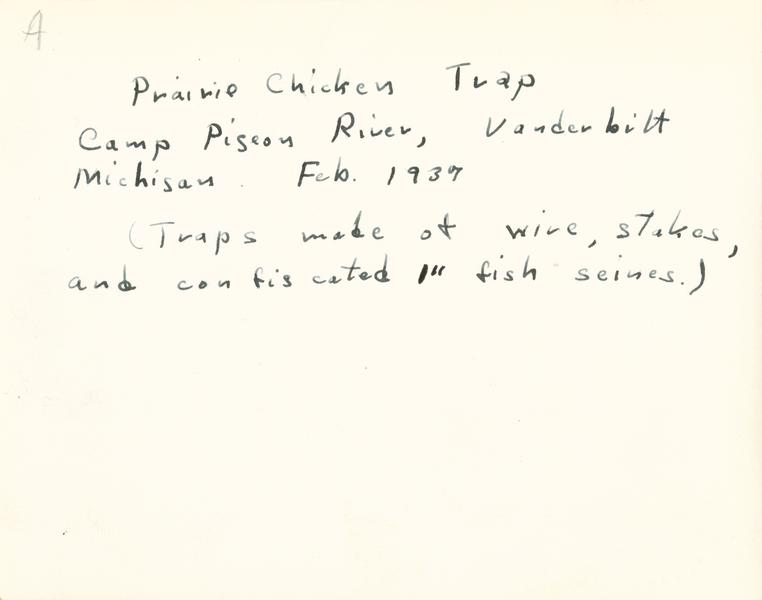 A
Prairie Chicken Trap
Camp Pigeon River, Vanderbilt
Michigan. Feb. 1937
(Traps made of wire, stakes,
and confiscated 1" fish seines.)